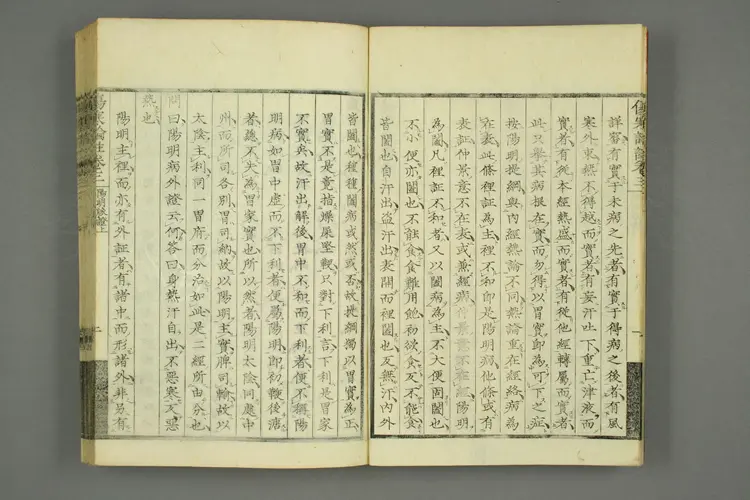 詳審有實于未病之先者有實于得病之後者有風
寒外束熱不得越而實者有妄汗吐下重亡津液而
實者有從本經熱盛而實者有從他經轉屬而實者
此只舉其病根在實而勿得以胃實即為可下之症
按陽明提綱與內經熱論不同熱論重在經絡病為
在表此條裡証為主裡不和即是陽明病他條或有
表証仲景意不在表或兼經病仲景意不在經陽明
為闔凡裡証不和者又以闔病為主不大便固闔也
不小便亦闔也不能食食難用飽初欲食反不能食
皆闔也自汗出盜汗出表開而裡闔也反無汗內外
皆闔也種種闔病或然或否故提綱獨以胃實為正
胃實不是竟指燥屎堅鞕只對下利言下利是胃家
不實矣故汗出解後胃中不和而下利者便不稱陽
明病如胃中虛而不下利者便屬陽明即初鞕後溏
者總不失為胃家實也所以然者陽明太陰同處中
州而所司各別胃司納故以陽明主實脾司輸故以
太陰主利同一胃府而分治如此是二經所由分也
問曰陽明病外證云何答曰身熱汗自出不惡寒反惡
熱也
陽明主裡而亦有外証者有諸中而形諸外非另有
傷寒論註卷三 陽明脉證上 二